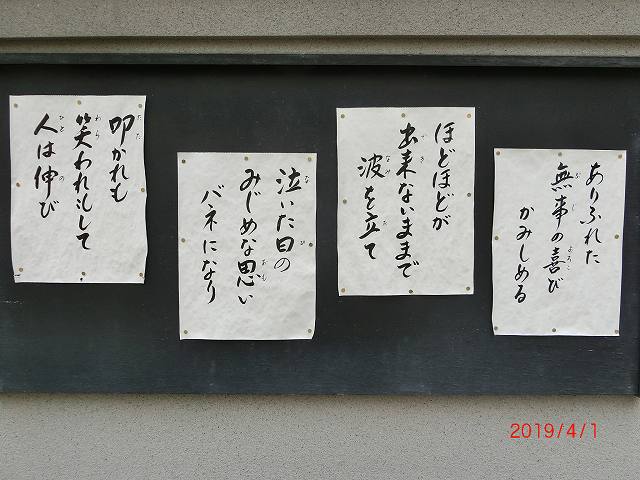 ありふれた
無事の喜び
かみしめる
ほどほどが
出来ないままで
波を立て
泣いた日の
みじめな思い
バネになり
叩かれも
笑われもして
人は伸び
2019/4/1